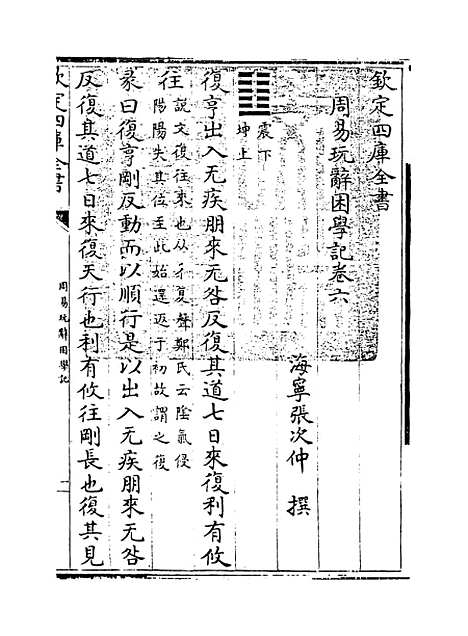 欽定四庫全書
周易玩辭困學記卷六
海寧張次仲 撰
震下
坤上
復亨出入无疾朋來无咎反復其道七日來復利有攸
往
說文復往來也从彳复聲鄭氏云陰氣侵
陽陽失其位至此始還返于初故謂之復
彖曰復亨剛反動而以順行是以出入无疾朋來无咎
反復其道七日來復天行也利有攸往剛長也復其見
欽定四庫全書
周易玩辭困學記